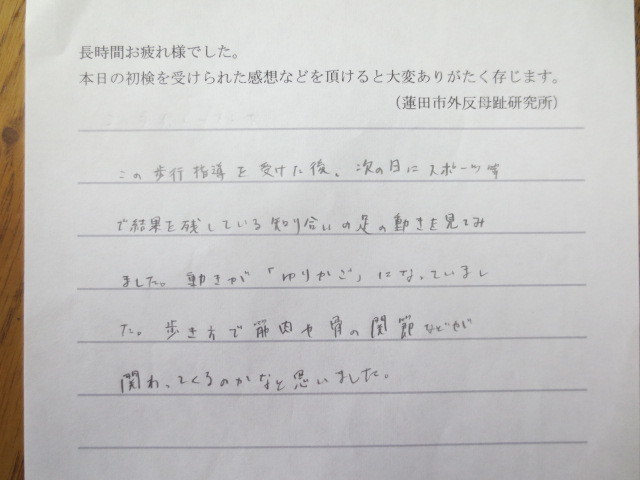 長時間お疲れ様でした。
本日の初検を受けられた感想などを頂けると大変ありがたく存じます。
（蓮田市外反母趾研究所）
この歩行指導を受けた後、次の日にスポーツ等
で結果を残している知り合いの足の動きを見てみ
ました。動きが「ゆりかご」になっていまし
た。歩き方で筋肉や骨の関節などが
関わってくるのかなと思いました。